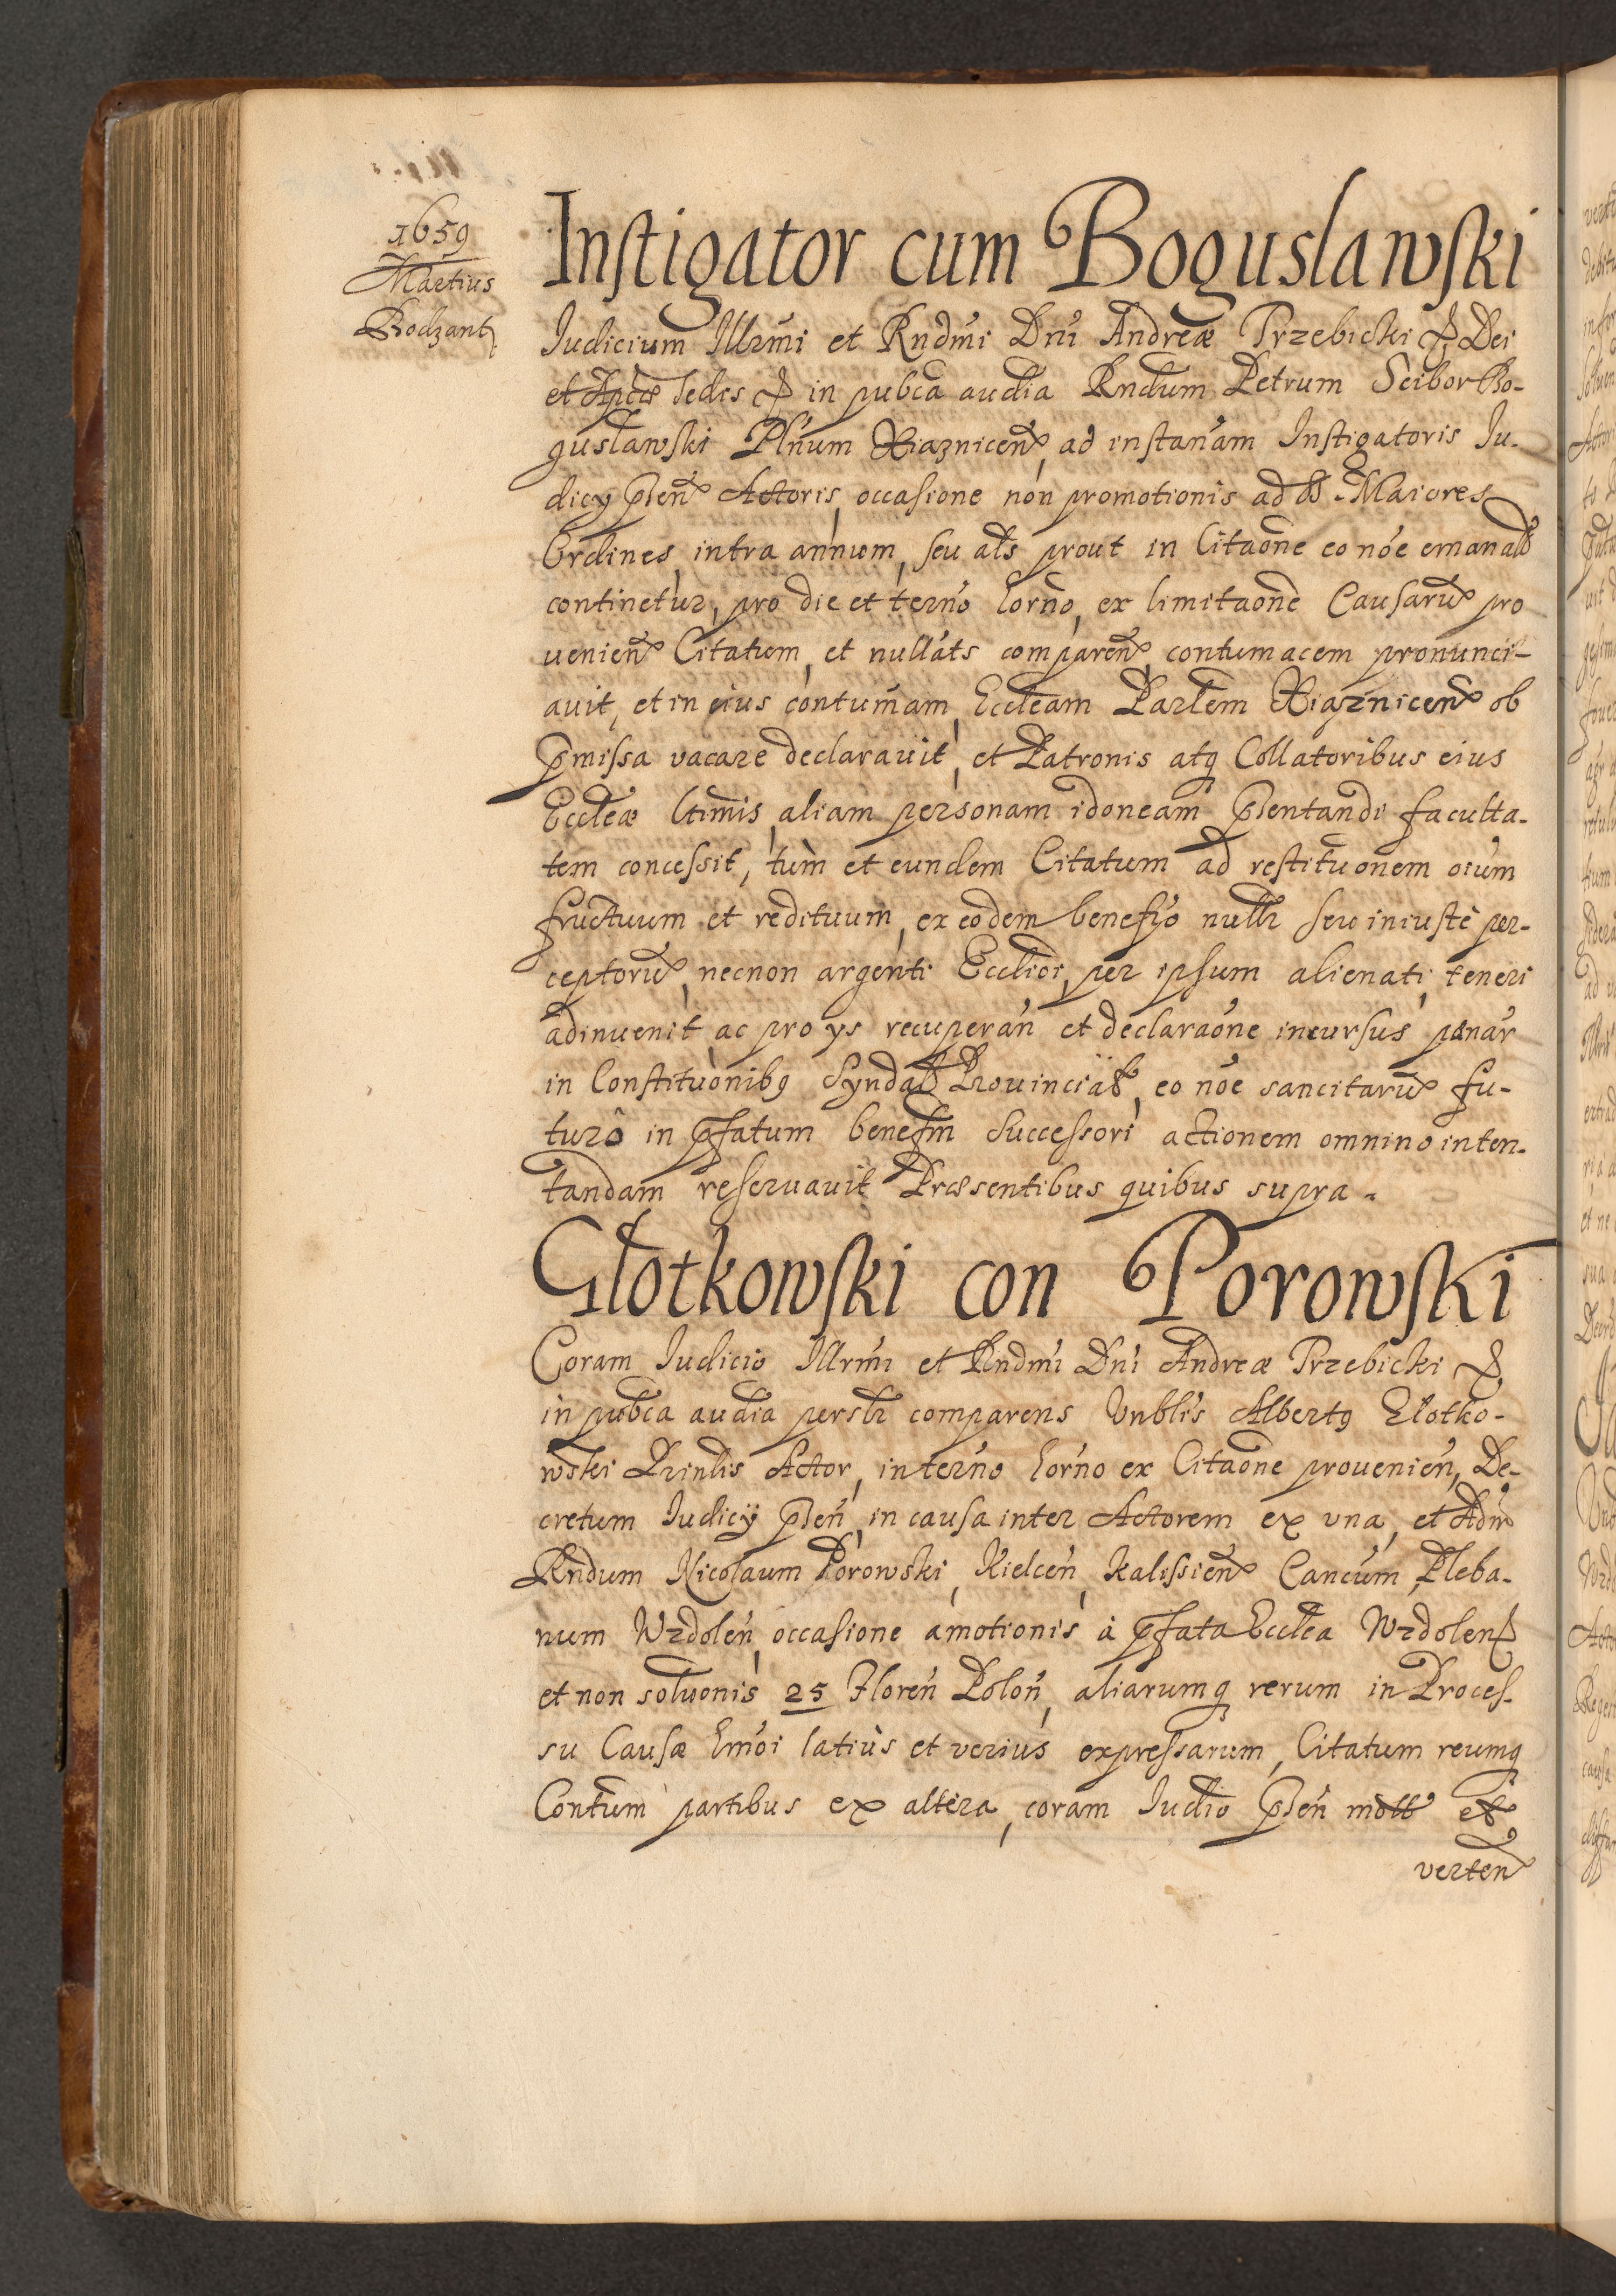 1659
Martius
Bodzant
Instigator cum Boguslawski
Iudicium Illrmi et Rndmi Dni Andreæ Trzebicki & Dei
et Aptcæ sedis & in pubca audia Rndum Petrum Scibor Bo-
guslawski Plnum Xiaznicen, ad instanam Instigatoris Iu-
dicy pñten Actoris, occasione non promotionis ad SS. Maiores
Ordines, intra annum, seu als prout in Citaone eo noe emanata
continetur, pro die et terno horno, ex limitaone Causaru pro
uenien Citatum, et nullats comparen, contumacem pronunci-
auit, et in eius contumam, Eccleam Parlem Xiaznicen ob
pmissa vacare declarauit, et Patronis atq Collatoribus eius
Eccleæ ltimis, aliam personam idoneam pñtentandi faculta-
tem concessit, tum et eundem Citatum ad restituonem oium
fructuum et redituum, ex eodem benefyo nullr seu iniuste per-
ceptoru, necnon argenti Ecclici, per ipsum alienati, teneri
adinuenit ac pro ys recuperan et declaraone incursus pænar
in Constituonibq Syndal Prouincial, eo noe sancitaru fu-
turo in pfatum benefm Successori actionem omnino inten-
tandam reseruauit Præsentibus quibus supra.
Głotkowski con Porowski
Coram Iudicio Illrmi et Rndmi Dni Andreæ Trzebicki &
in pubca audia perslr comparens Vnblis Albertq Głotko-
wski Prinlis Actor, in terno horno ex Citaone prouenien, De-
cretum Iudicy pñten, in causa inter Actorem ex una, et Adm
Rndum Nicolaum Porowski, Kielcen, Kalissien Cancum, Pleba-
num Wrdolen, occasione amotionis à pfata Ecclea Wrdolen
et non soluonis 25 Floren Polon, aliarumq rerum in Proces-
su Causæ hmoi latius et verius expressarum, Citatum reumq
Contum partibus ex altera, coram Iudio pñten mott et
verten